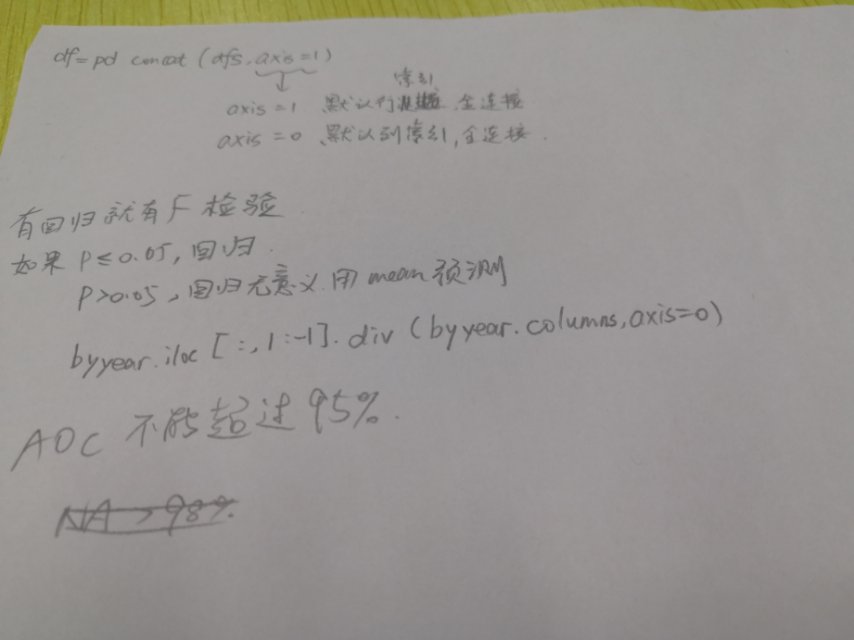 df=pd concat (dfs, axis=1)
索引
axis = 1 默认行 全连接
axis = 0 默认列索引,全连接.
有回归就有F检验
如果 P≤0.05,回归.
P>0.05,回归无意义.用mean预测
byyear.iloc [:,1:-1].div (byyear.columns,axis=0)
AOC 不能超过95%.
NA>98%